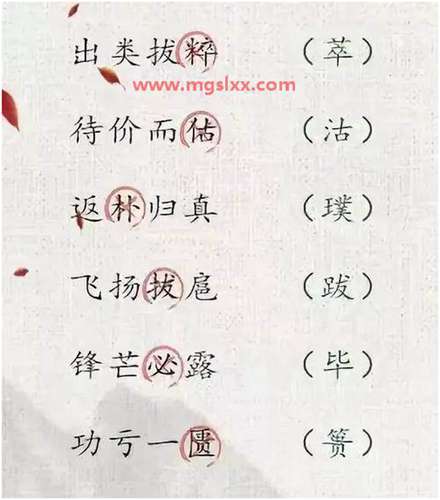 出类拔粹 （萃）
www.mgslxx.com
待价而估 （沽）
返朴归真 （璞）
飞扬拔扈 （跋）
锋芒必露 （毕）
功亏一匮 （篑）